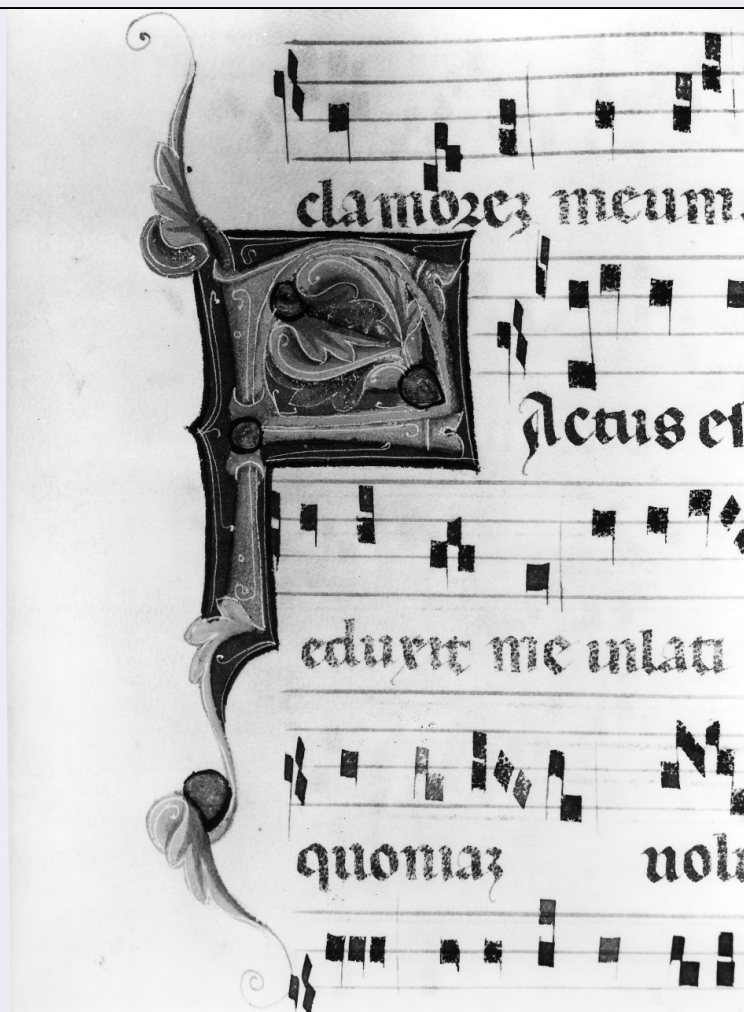 clamorez meum.
F Actus es
eduxit me inlati
quoniaz uolu